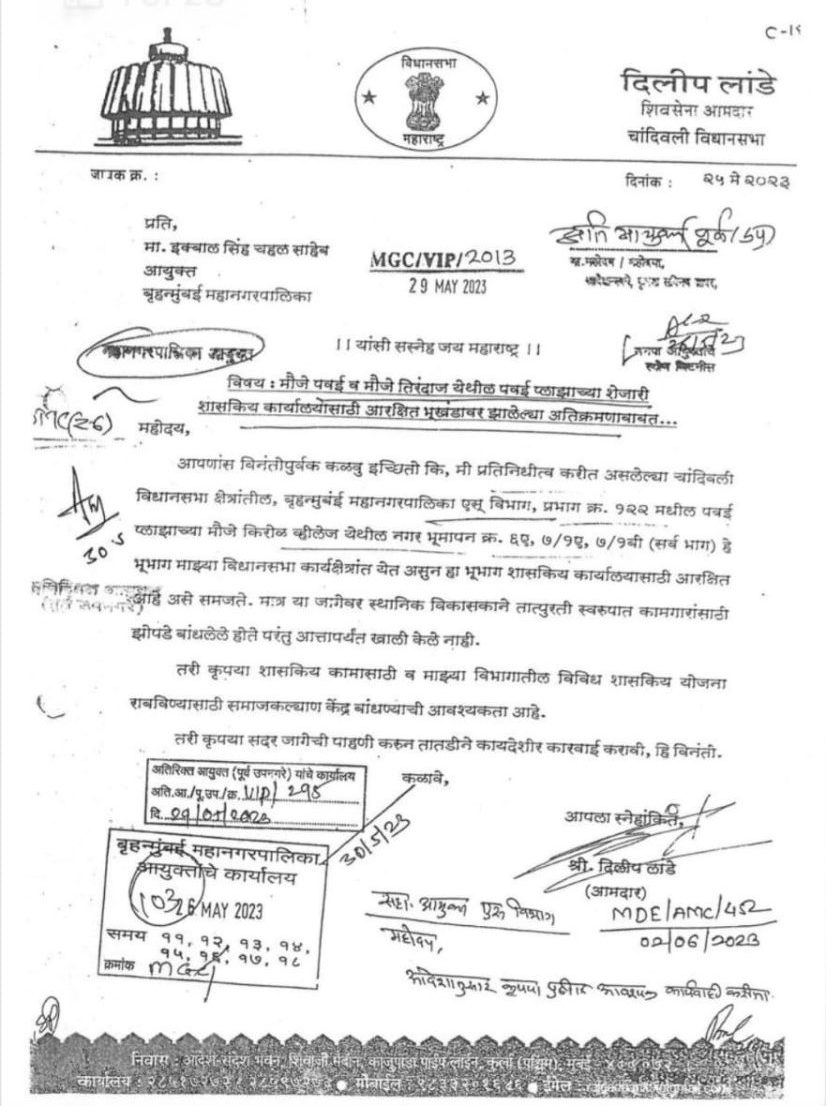 C-19
विधानसभा
महाराष्ट्र
दिलीप लांडे
शिवसेना आमदार
चांदिवली विधानसभा
जावक क्र. :
दिनांक : २५ मे २०२३
प्रति,
मा. इक्बाल सिंह चहल साहेब
आयुक्त
बृहन्मुंबई महानगरपालिका
MGC/VIP/2013
29 MAY 2023
महानगरपालिका आयुक्त
।। यांसी सस्नेह जय महाराष्ट्र ।।
विषय : मौजे पवई व मौजे तिरंदाज येथील पवई प्लाझाच्या शेजारी
शासकिय कार्यालयांसाठी आरक्षित भूखंडावर झालेल्या अतिक्रमणाबाबत...
महोदय,
आपणांस विनंतीपुर्वक कळवु इच्छितो कि, मी प्रतिनिधीत्व करीत असलेल्या चांदिवली
विधानसभा क्षेत्रांतील, बृहन्मुबंई महानगरपालिका एस् विभाग, प्रभाग क्र. १२२ मधील पवई
प्लाझाच्या मौजे किरोळ व्हीलेज येथील नगर भूमापन क्र. ६ए, ७/१ए, ७/१बी (सर्व भाग) हे
भूभाग माझ्या विधानसभा कार्यक्षेत्रांत येत असुन हा भूभाग शासकिय कार्यालयासाठी आरक्षित
आहे असे समजते. मात्र या जागेवर स्थानिक विकासकाने तात्पुरती स्वरुपात कामगारांसाठी
झोपडे बांधलेले होते परंतु आत्तापर्यंत खाली केले नाही.
30 5
तरी कृपया शासकिय कामासाठी व माझ्या विभागातील विविध शासकिय योजना
राबविण्यासाठी समाजकल्याण केंद्र बांधण्याची आवश्यकता आहे.
तरी कृपया सदर जागेची पाहणी करुन तातडीने कायदेशीर कारवाई करावी, हि विनंती.
कळावे,
अतिरिक्त आयुक्त (पूर्व उपनगरे) यांचे कार्यालय
अति.आ./पू.उप./क्र. VIP/ 295
दि. 29/05/2023
30/5/23
आपला स्नेहांकित,
श्री. दिलीप लांडे
(आमदार)
बृहन्मुंबई महानगरपालिका
आयुक्तांचे कार्यालय
103
26 MAY 2023
समय ११, १२, १३, १४,
१५, १६, १७, १८
क्रमांक MGC/
सहा. आयुक्त एस विभाग
MDE/AMC/452
02/06/2023
महोदय,
आदेशानुसार कृपया पुढील आवश्यक कार्यवाही करीता
निवास : आदेश-संदेश भवन, शिवाजी मैदान, काजुपाडा पाईप लाईन, कुर्ला (पश्चिम), मुंबई
कार्यालय :
मोबाईल :
ईमेल :